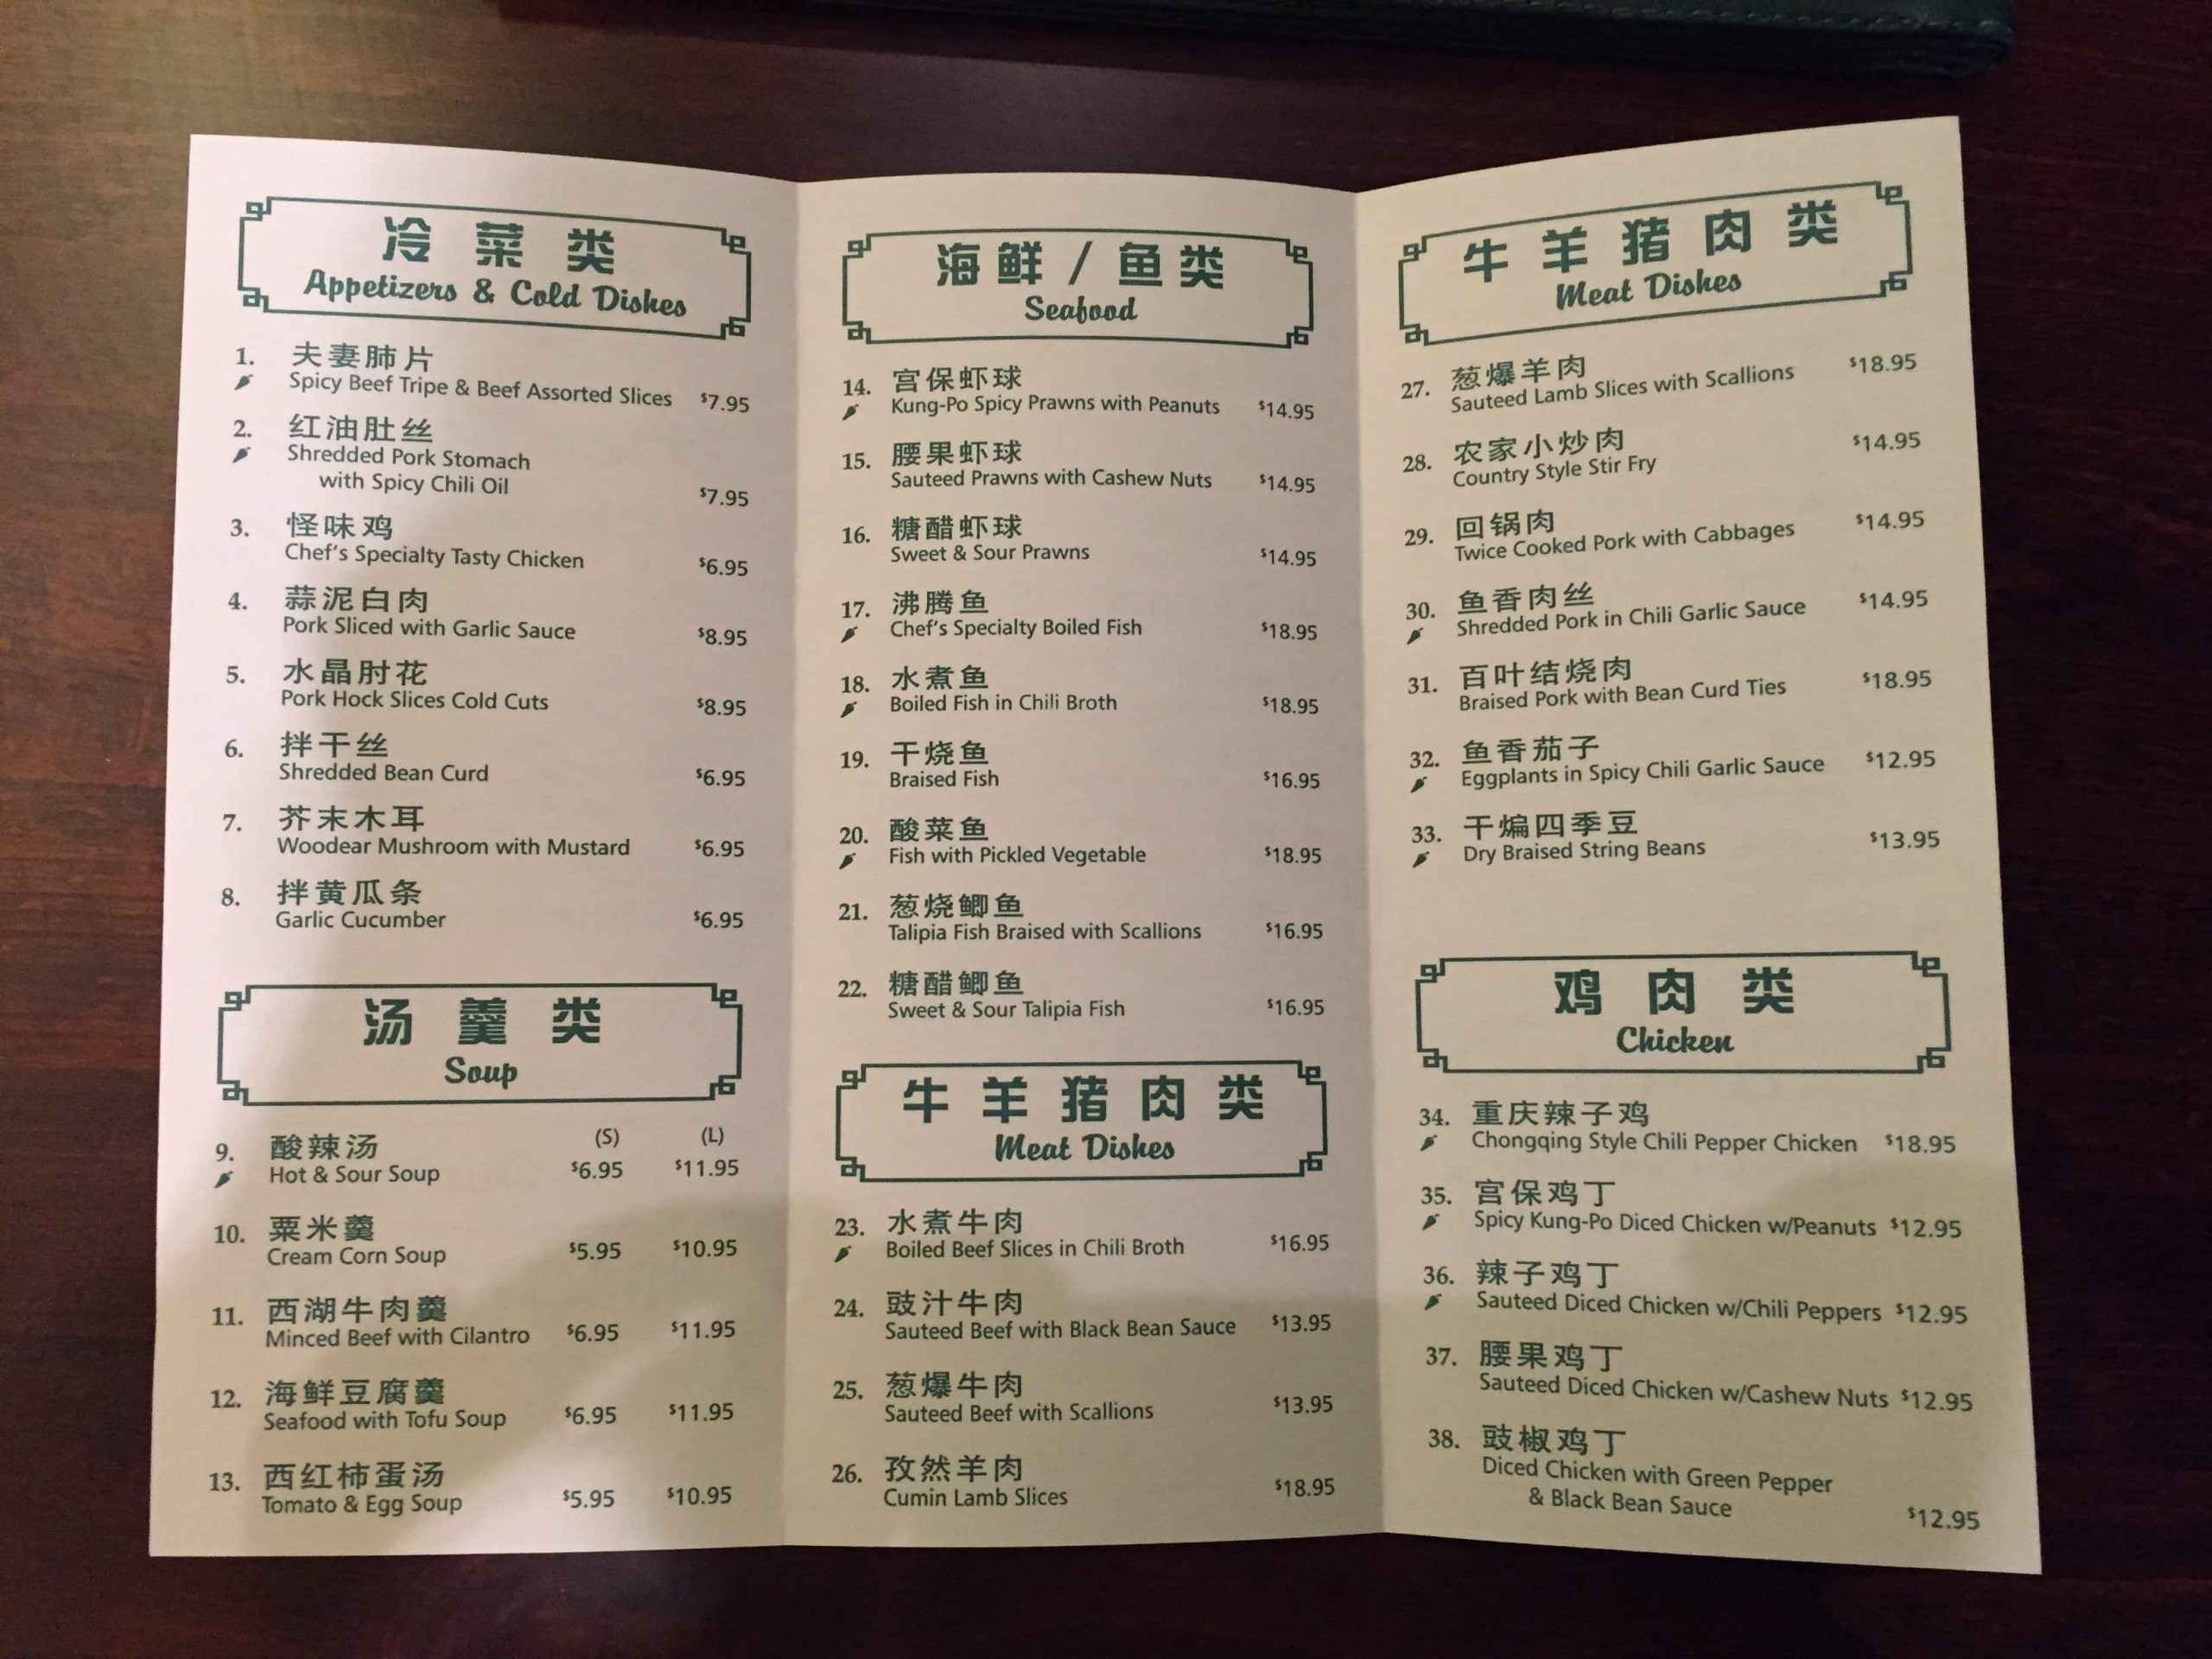 冷菜类
Appetizers & Cold Dishes
1. 夫妻肺片
Spicy Beef Tripe & Beef Assorted Slices $7.95
2. 红油肚丝
Shredded Pork Stomach
with Spicy Chili Oil $7.95
3. 怪味鸡
Chef's Specialty Tasty Chicken $6.95
4. 蒜泥白肉
Pork Sliced with Garlic Sauce $8.95
5. 水晶肘花
Pork Hock Slices Cold Cuts $8.95
6. 拌干丝
Shredded Bean Curd $6.95
7. 芥末木耳
Woodear Mushroom with Mustard $6.95
8. 拌黄瓜条
Garlic Cucumber $6.95
汤羹类
Soup
9. 酸辣汤 (S) (L)
Hot & Sour Soup $6.95 $11.95
10. 粟米羹
Cream Corn Soup $5.95 $10.95
11. 西湖牛肉羹
Minced Beef with Cilantro $6.95 $11.95
12. 海鲜豆腐羹
Seafood with Tofu Soup $6.95 $11.95
13. 西红柿蛋汤
Tomato & Egg Soup $5.95 $10.95
海鲜/鱼类
Seafood
14. 宫保虾球
Kung-Po Spicy Prawns with Peanuts $14.95
15. 腰果虾球
Sauteed Prawns with Cashew Nuts $14.95
16. 糖醋虾球
Sweet & Sour Prawns $14.95
17. 沸腾鱼
Chef's Specialty Boiled Fish $18.95
18. 水煮鱼
Boiled Fish in Chili Broth $18.95
19. 干烧鱼
Braised Fish $16.95
20. 酸菜鱼
Fish with Pickled Vegetable $18.95
21. 葱烧鲫鱼
Talipia Fish Braised with Scallions $16.95
22. 糖醋鲫鱼
Sweet & Sour Talipia Fish $16.95
牛羊猪肉类
Meat Dishes
23. 水煮牛肉
Boiled Beef Slices in Chili Broth $16.95
24. 豉汁牛肉
Sauteed Beef with Black Bean Sauce $13.95
25. 葱爆牛肉
Sauteed Beef with Scallions $13.95
26. 孜然羊肉
Cumin Lamb Slices $18.95
牛羊猪肉类
Meat Dishes
27. 葱爆羊肉 $18.95
Sauteed Lamb Slices with Scallions
28. 农家小炒肉 $14.95
Country Style Stir Fry
29. 回锅肉 $14.95
Twice Cooked Pork with Cabbages
30. 鱼香肉丝 $14.95
Shredded Pork in Chili Garlic Sauce
31. 百叶结烧肉 $18.95
Braised Pork with Bean Curd Ties
32. 鱼香茄子 $12.95
Eggplants in Spicy Chili Garlic Sauce
33. 干煸四季豆 $13.95
Dry Braised String Beans
鸡肉类
Chicken
34. 重庆辣子鸡
Chongqing Style Chili Pepper Chicken $18.95
35. 宫保鸡丁
Spicy Kung-Po Diced Chicken w/Peanuts $12.95
36. 辣子鸡丁
Sauteed Diced Chicken w/Chili Peppers $12.95
37. 腰果鸡丁
Sauteed Diced Chicken w/Cashew Nuts $12.95
38. 豉椒鸡丁
Diced Chicken with Green Pepper
& Black Bean Sauce $12.95